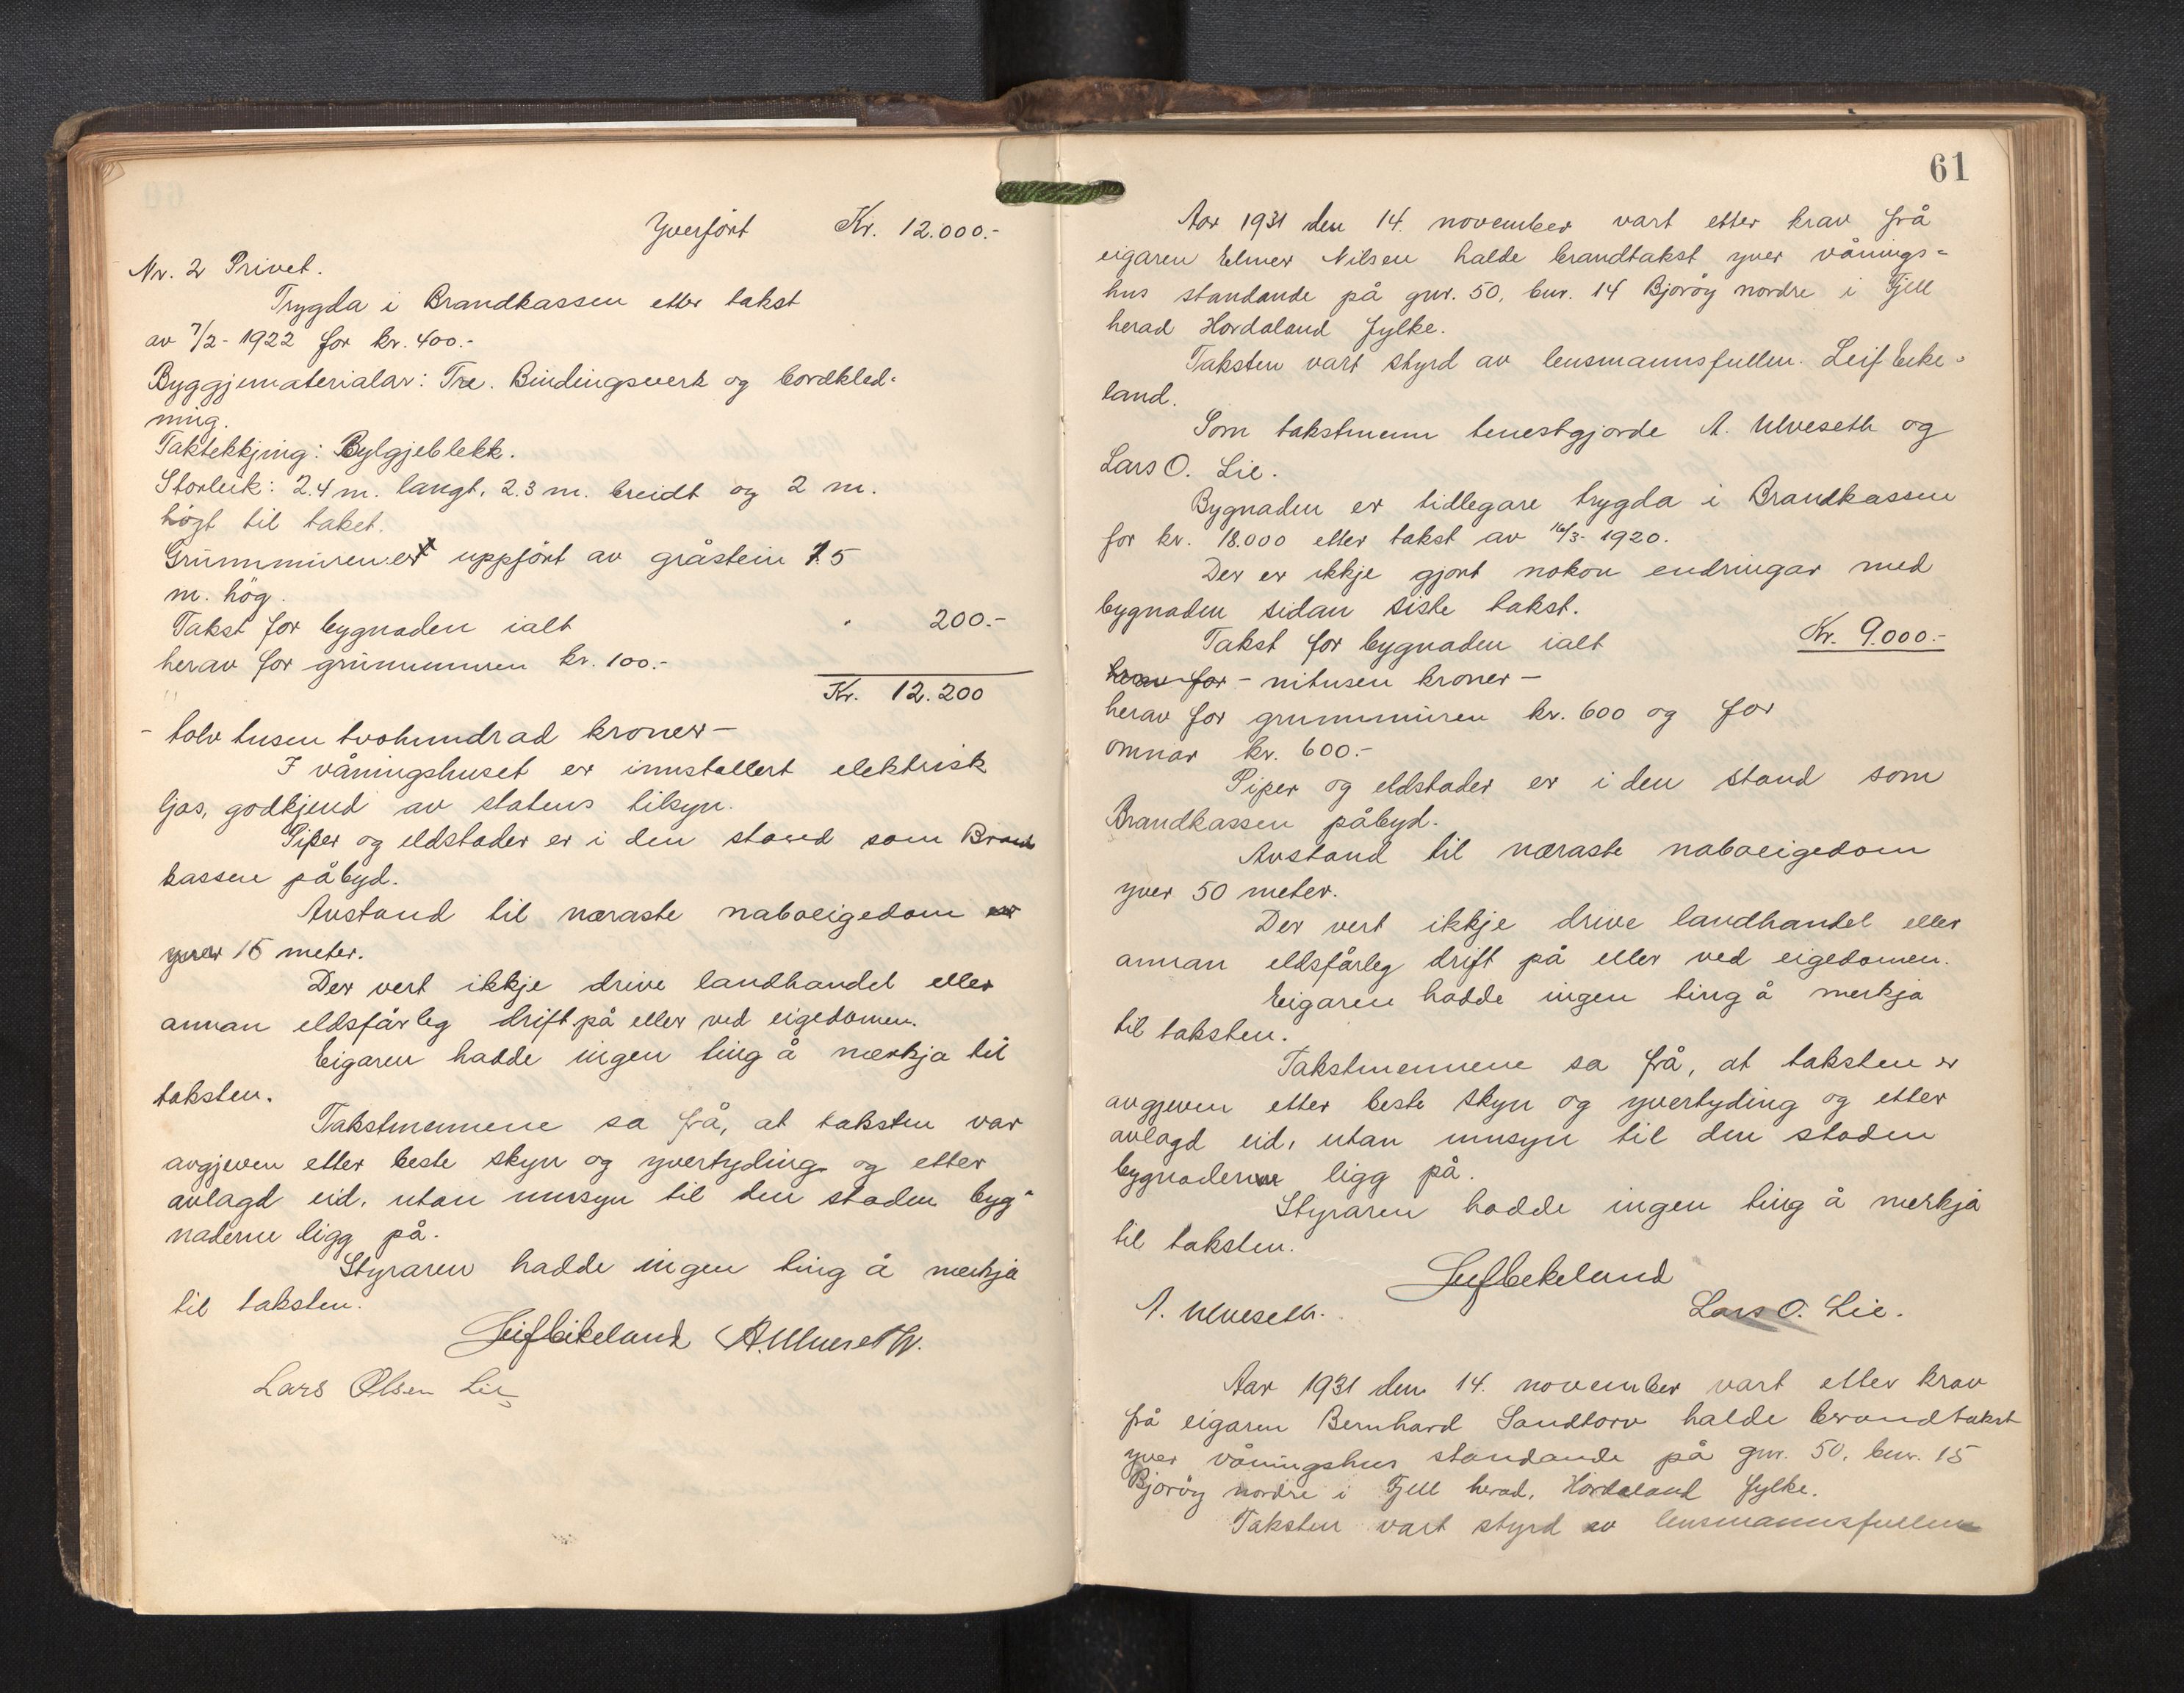 Yverfört Kr. 12.000.-
Nr. 2 Privet.
Trygda i Brandkassen etter takst
av 7/2 - 1922 for kr. 400.-
Byggjematerialar: Tre. Bindingsverk og bordkled-
ning.
Taktekkjing: Bylgjeblekk.
Storleik: 2.4 m. langt, 2.3 m. breidt og 2 m.
högt til taket.
Grunnmuren er uppfört av gråstein 1.5
m. hög.
Takst for bygnaden ialt " 200.-
herav for grunnmuren kr. 100.-
Kr. 12.200
- tolv tusen tvohundrad kroner -
I våningshuset er innstallert elektrisk
ljos, godkjend av statens tilsyn.
Piper og eldstader er i den stand som Brand
kassen påbyd.
Avstand til næraste naboeigedom er
yver 15 meter.
Der vert ikkje drive landhandel eller
annan eldsfårleg drift på eller ved eigedomen.
Eigaren hadde ingen ting å merkja til
taksten.
Takstmennene sa frå, at taksten var
avgjeven etter beste skyn og yvertyding og etter
avlagd eid, utan umsyn til den staden byg-
naderne ligg på.
Styraren hadde ingen ting å merkja
til taksten.
Leif Eikeland A. Ulveseth.
Lars Olsen Lie
61
Aar 1931 den 14. november vart etter krav frå
eigaren Elmer Nilsen halde brandtakst yver vånings-
hus standande på gnr. 50, bnr. 14 Bjoröy nordre i Fjell
herad Hordaland fylke.
Taksten vart styrd av lensmannsfullm. Leif Eike-
land.
Som takstmenn tenestgjorde A. Ulveseth og
Lars O. Lie.
Bygnaden er tidlegare trygda i Brandkassen
for kr. 18.000 etter takst av 16/3- 1920.
Der er ikkje gjort nokon endringar med
bygnaden sidan siste takst.
Takst for bygnaden ialt Kr. 9.000.-
herav for - nitusen kroner -
herav for grunnmuren kr. 600 og for
omnar kr. 600.-
Piper og eldstader er i den stand som
Brandkassen påbyd.
Avstand til næraste naboeigedom
yver 50 meter.
Der vert ikkje drive landhandel eller
annan eldsfårleg drift på eller ved eigedomen.
Eigaren hadde ingen ting å merkja
til taksten.
Takstmennene sa frå, at taksten er
avgjeven etter beste skyn og yvertyding og etter
avlagd eid, utan umsyn til den staden
bygnaden ligg på.
Styraren hadde ingen ting å merkja
til taksten.
Leif Eikeland
A. Ulveseth. Lars O. Lie.
Aar 1931 den 14. november vart etter krav
frå eigaren Bernhard Sandtorv halde brandtakst
yver våningshus standande på gnr. 50, bnr. 15
Bjoröy nordre i Fjell herad, Hordaland fylke.
Taksten vart styrd av lensmannsfullm